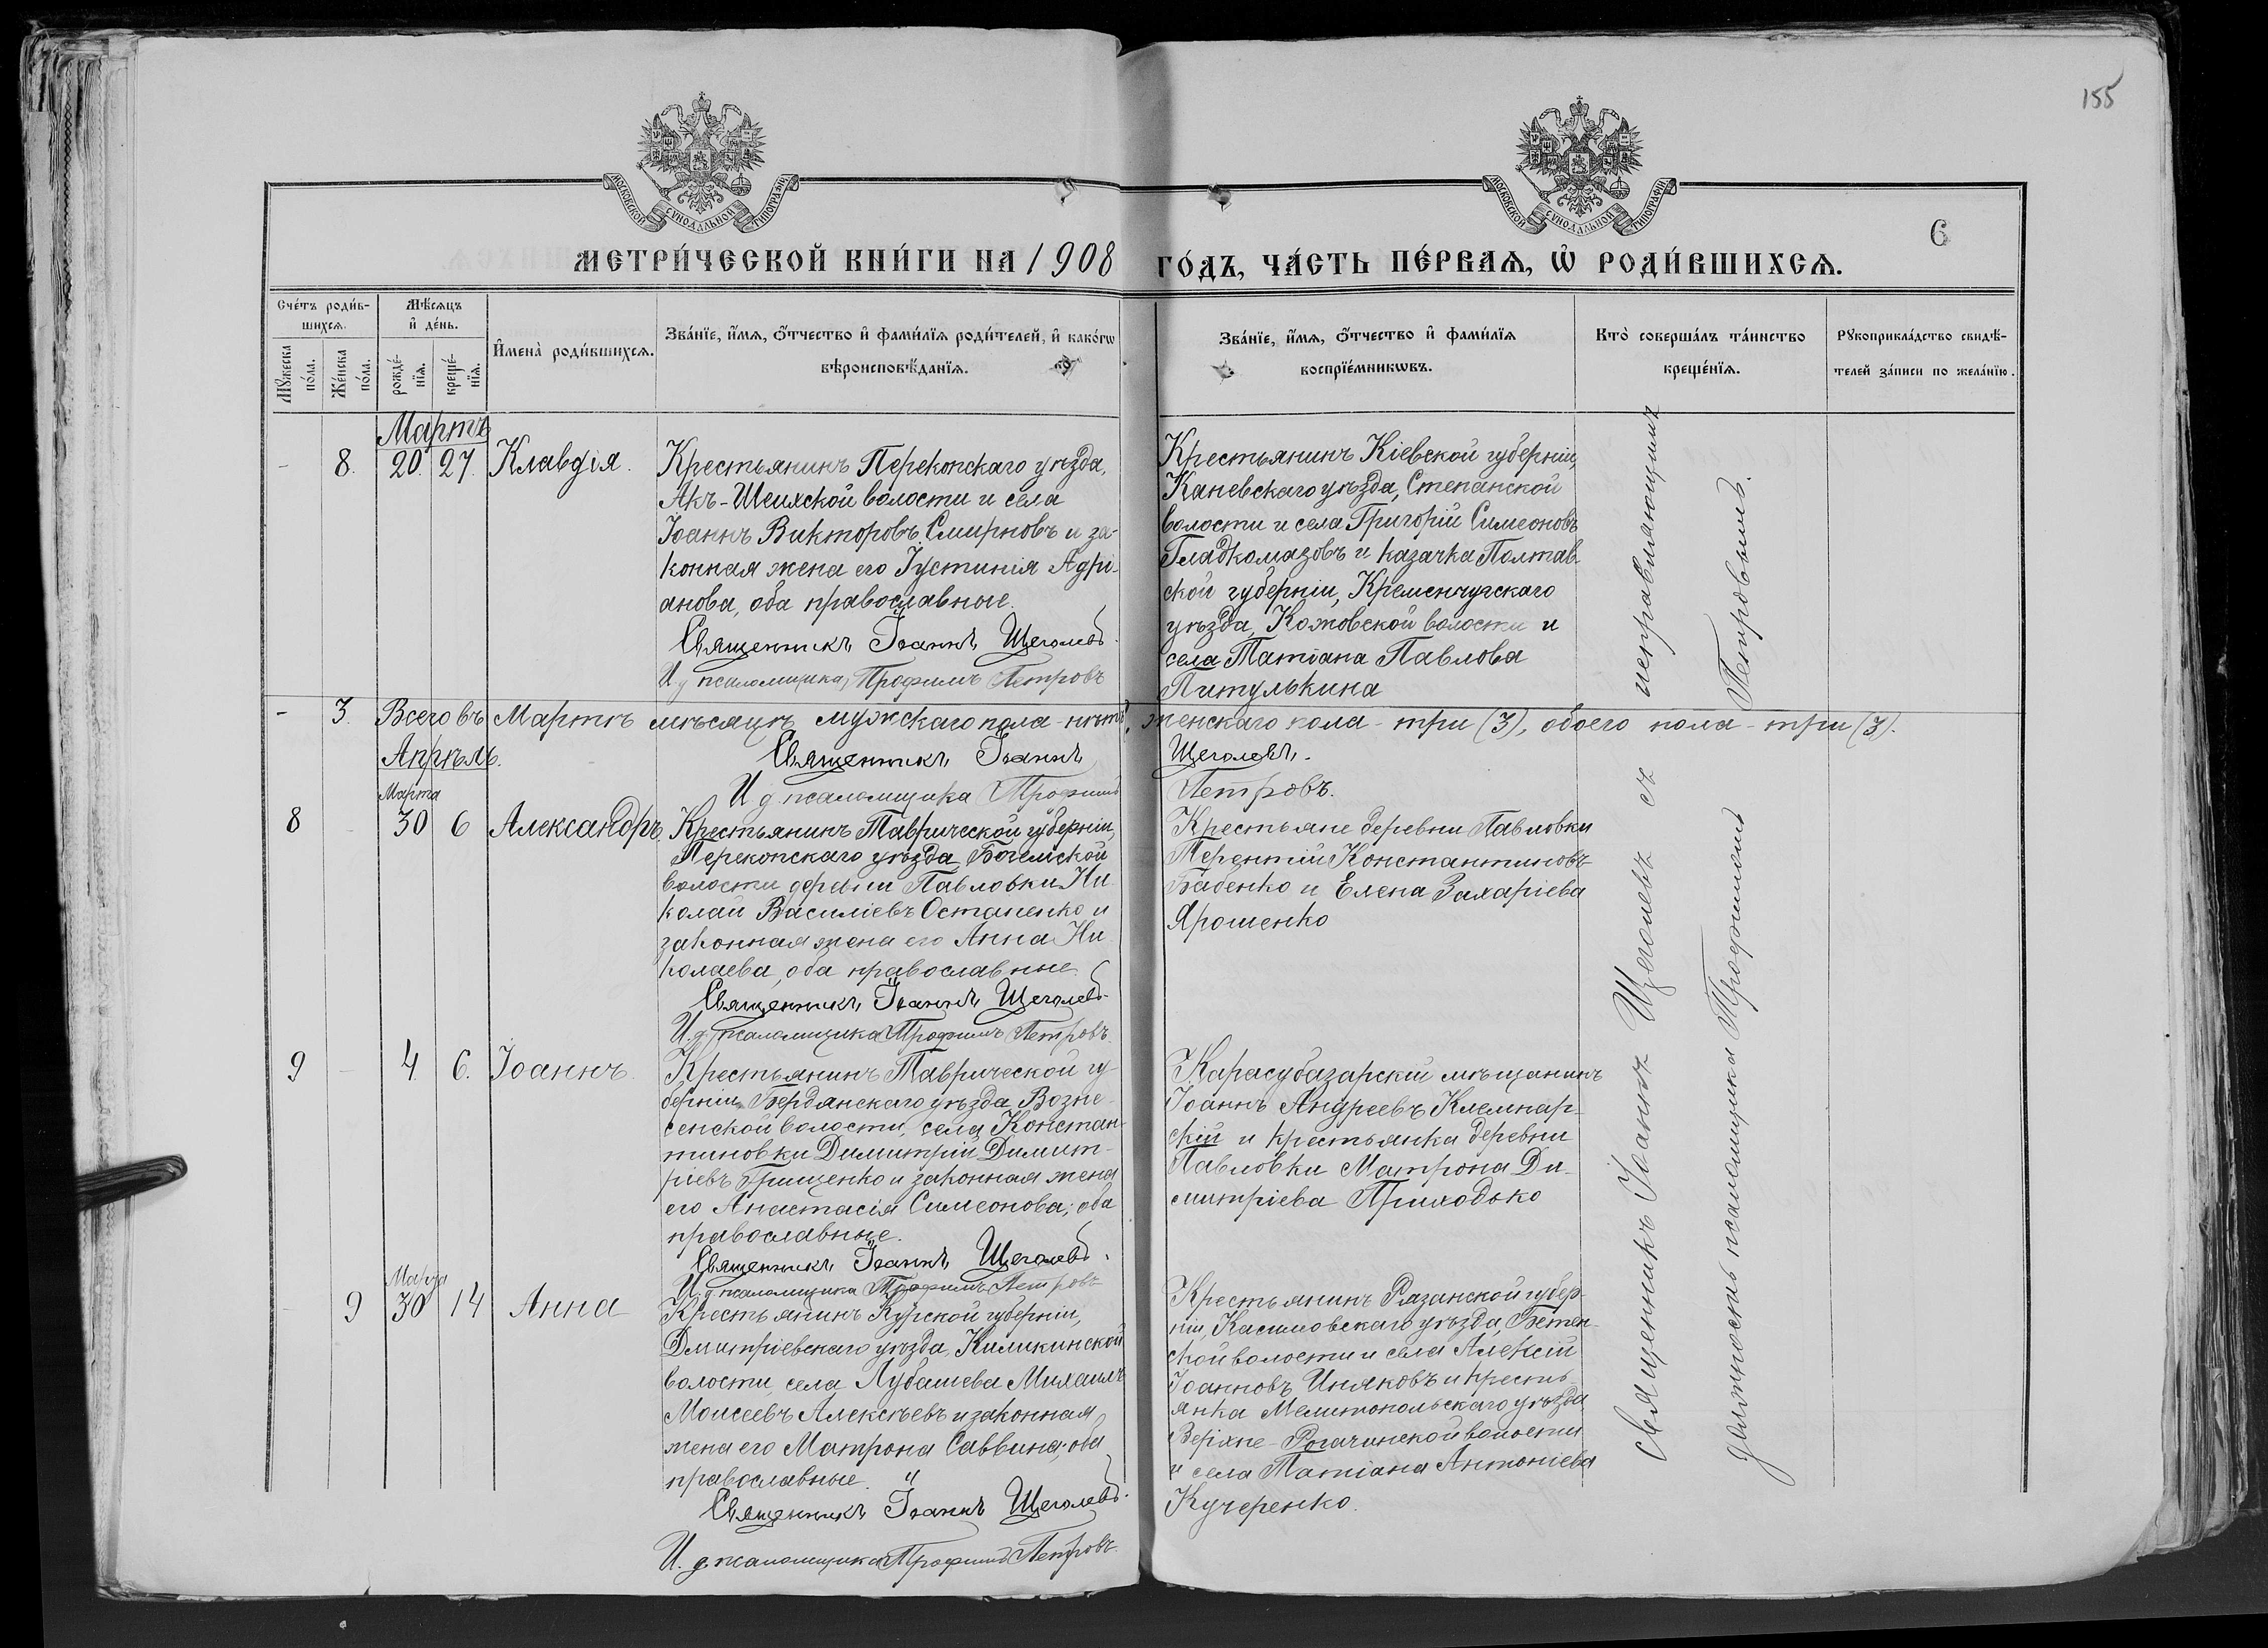 155
МОСКОВСКОЙ СУНОДАЛЬНОЙ ТИПОГРАФІИ
МОСКОВСКОЙ СУНОДАЛЬНОЙ ТИПОГРАФІИ
6
МЕТРИ́ЧЕСКОЙ КНИ́ГИ НА 1908 ГО́ДЪ, ЧА́СТЬ ПЕ́РВАЯ, Ѡ҆ РОДИ́ВШИХСЯ.
Сче́тъ роди́в-
шихся.
Мꙋжеска по́ла.
Же́нска по́ла.
Мѣ́сяцъ
и҆ де́нь.
рожде́-
нїя.
креще́-
нїя.
И҆мена̀ роди́вшихся.
Зва́нїе, и҆́мя, ѻ҆́тчество и҆ фами́лїя роди́телей, и҆ како́гѡ
вѣроисповѣ́данїя.
Зва́нїе, и҆́мя, ѻ҆́тчество и҆ фами́лїя
воспрїе́мникѡвъ.
Кто̀ соверша́лъ та́инство
креще́нїя.
Рꙋкоприкла́дство свидѣ́-
телей за́писи по жела́нїю.
Мартъ
- 8. 20. 27. Клавдія.
Крестьянинъ Перекопскаго уѣзда,
Акъ-Шеихской волости и села
Іоаннъ Викторовъ Смирновъ и за-
конная жена его Іустинія Адрі-
анова, оба православные.
Священникъ Іоаннъ Щеголевъ.
И д псаломщика, Трофимъ Петровъ
Крестьянинъ Кіевской губерніи,
Каневскаго уѣзда, Степанской
волости и села Григорій Симеоновъ
Гладкомазовъ и казачка Полтав-
ской губерніи, Кременчугскаго
уѣзда, волости и
села Татіана Павлова
Питулькина
- 3. Всего въ Мартѣ мѣсяцѣ мужскаго пола - нѣтъ, женскаго пола - три (3), обоего пола - три (3).
Священникъ Іоаннъ Щеголевъ.
И д. псаломщика Трофимъ Петровъ.
Апрѣль.
Марта
8 - 30 6 Александръ.
Крестьянинъ Таврической губерніи,
Перекопскаго уѣзда Богемской
волости деревни Павловки Ни-
колай Василіевъ Остапенко и
законная жена его Анна Ни-
колаева, оба православные.
Священникъ Іоаннъ Щеголевъ
И. д. псаломщика Трофимъ Петровъ.
Крестьяне деревни Павловки
Терентій Константиновъ
Бабенко и Елена Захаріева
Ярошенко
9 - 4. 6. Іоаннъ.
Крестьянинъ Таврической гу-
берніи Бердянскаго уѣзда Возне-
сенской волости, села Констан-
тиновки Димитрій Димит-
ріевъ Грищенко и законная жена
его Анастасія Симеонова; оба
православные.
Священникъ Іоаннъ Щеголевъ.
И д псаломщика Трофимъ Петровъ
Карасубазарскій мѣщанинъ
Іоаннъ Андреевъ
и крестьянка деревни
Павловки Матрона Ди-
митріева Приходько
Марта
- 9 30 14 Анна
Крестьянинъ Курской губерніи,
Дмитріевскаго уѣзда,
волости села Лубашева Михаилъ
Моисеевъ Алексѣевъ и законная
жена его Матрона Саввина; оба
православные.
Священникъ Іоаннъ Щеголевъ.
И. д псаломщика Трофимъ Петровъ.
Крестьянинъ Рязанской губер-
ніи, Касимовскаго уѣзда, Бетен-
ской волости и села Алексій
Іоанновъ Иняковъ и кресть-
янка Мелитопольскаго уѣзда
Верхне-Рогачинской волости
и села Татіана Антоніева
Кучеренко.
Священникъ Іоаннъ Щеголевъ съ исправляющимъ
должность псаломщика Трофимомъ Петровымъ.